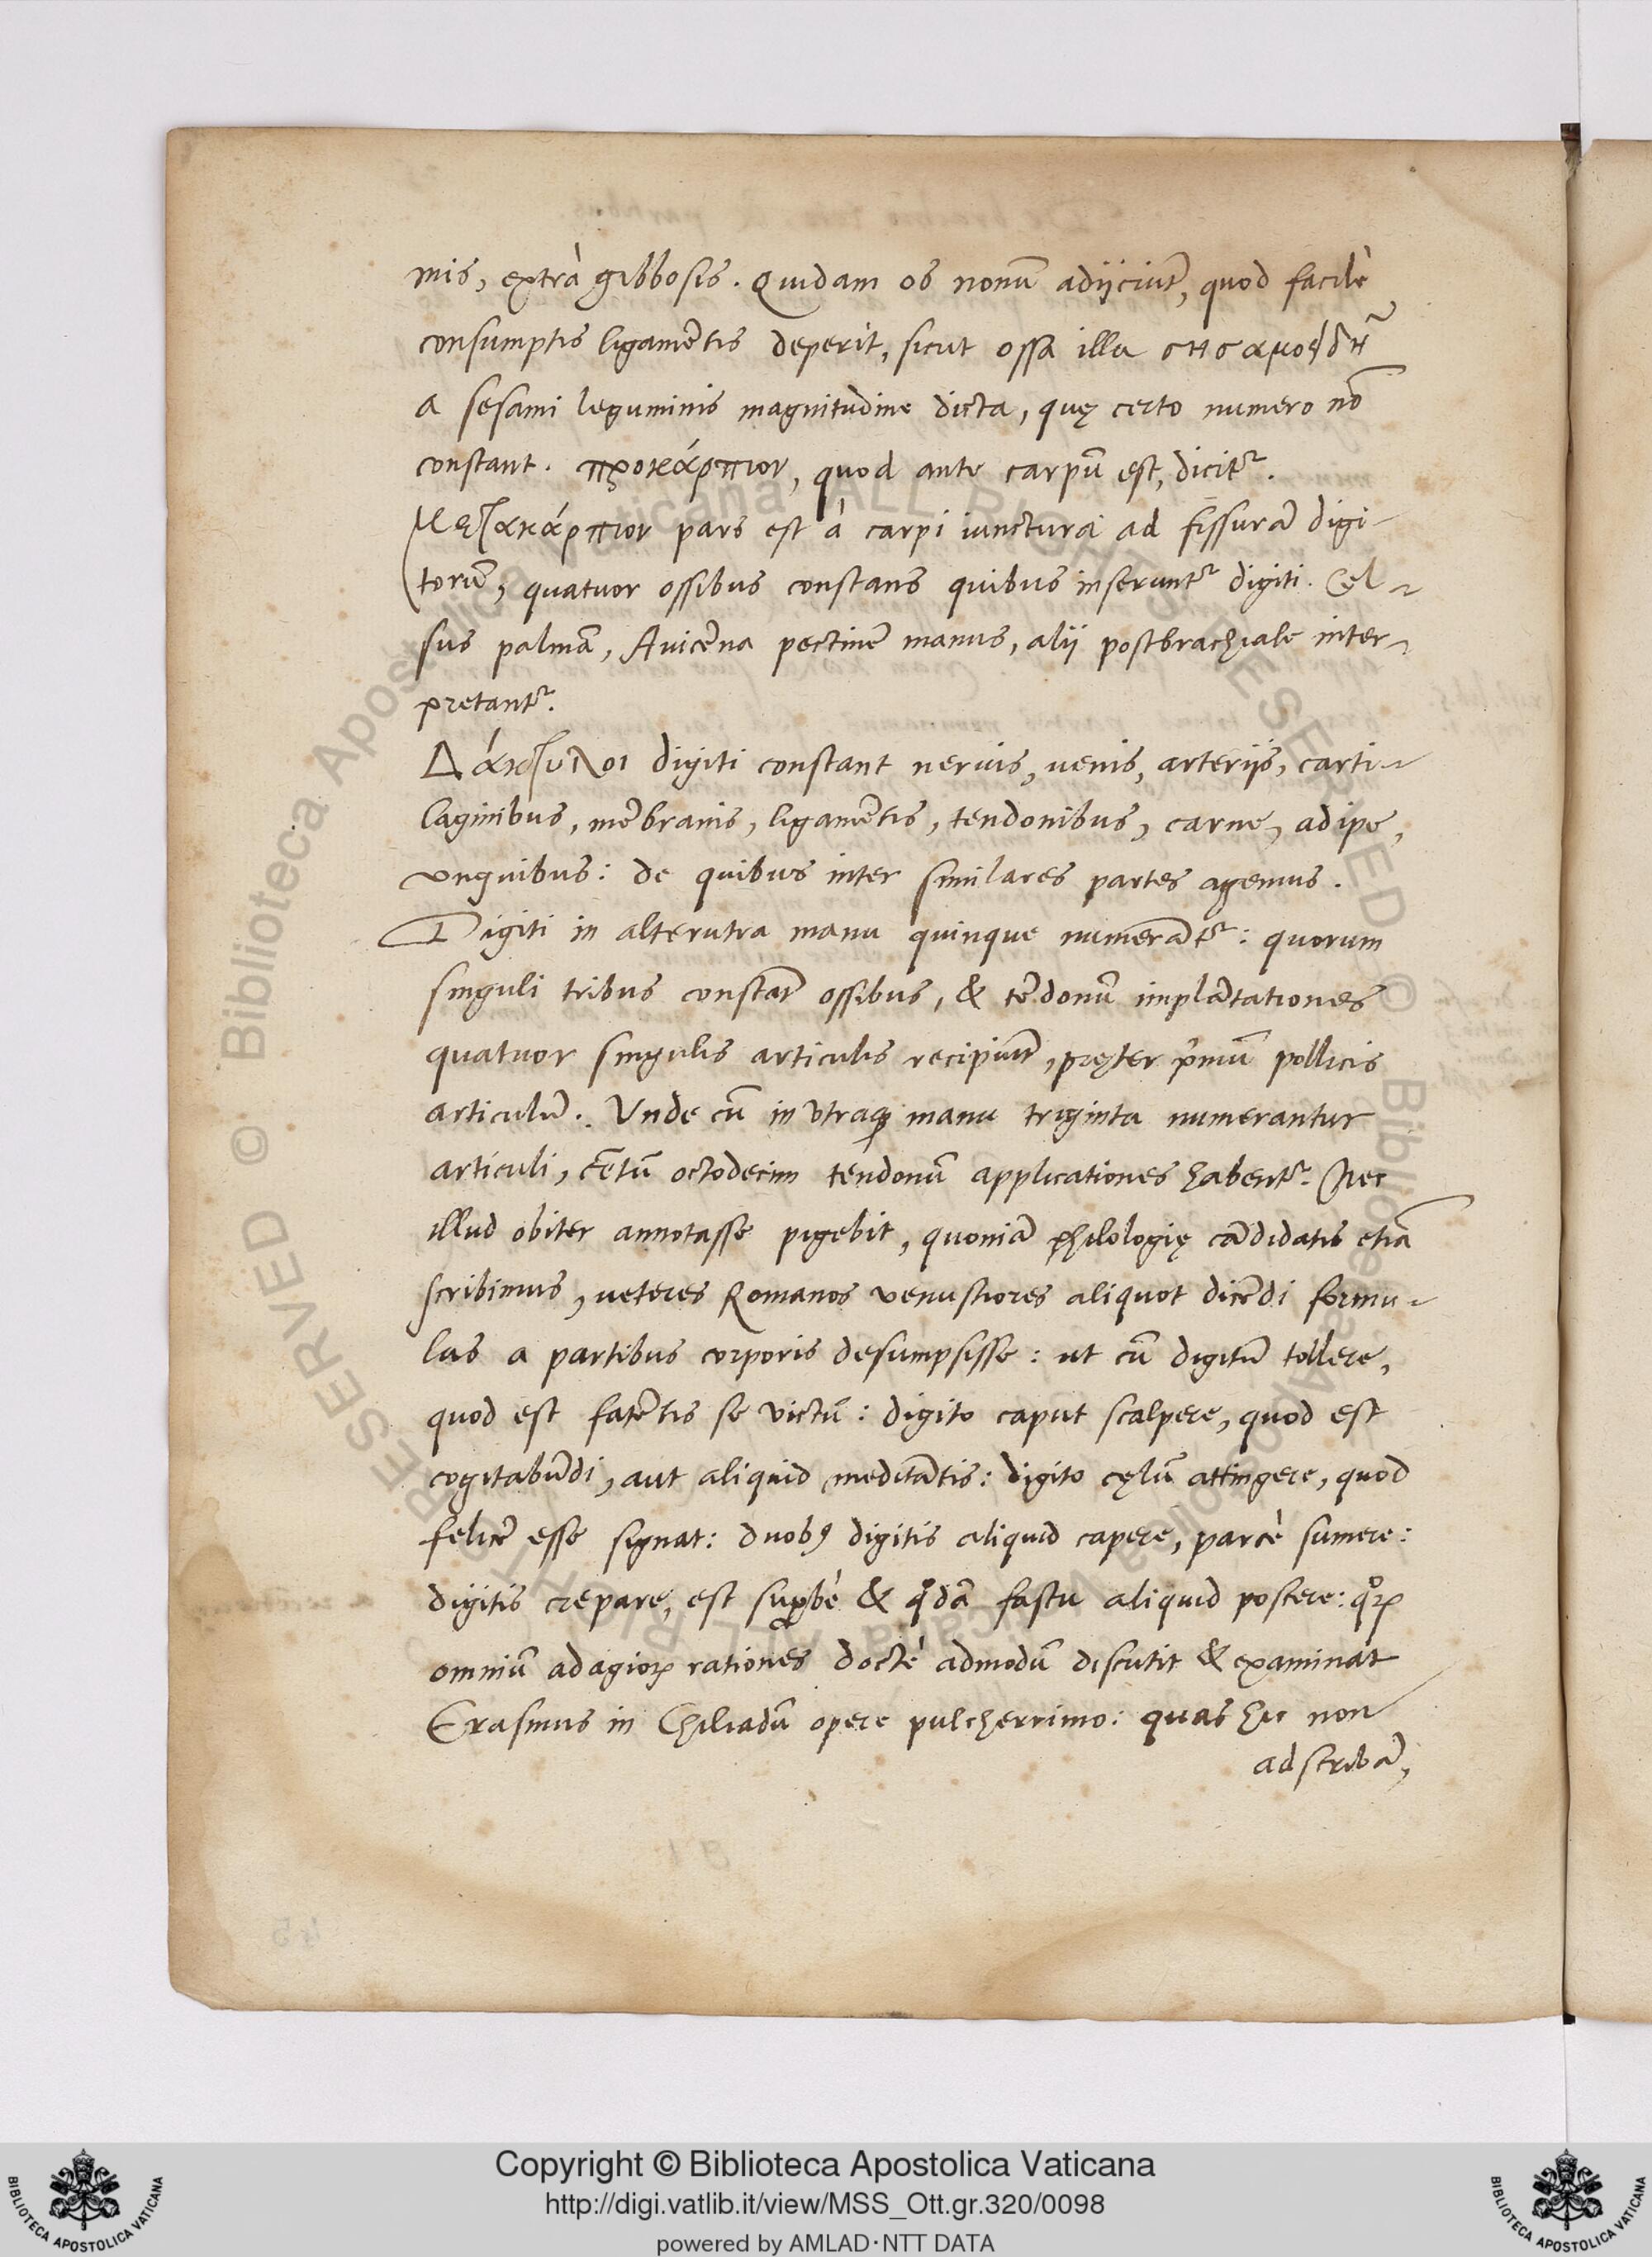 mis, extrà gibbosis. Quidam os nonū adijciūt, quod facilè
consumptis ligamētis deperit, sicut ossa illa σησαμοειδῆ
a sesami leguminis magnitudine dicta, quę certo numero nō
constant. προκάρπιον, quod ante carpū est, dicitr.
Μετακάρπιον pars est à carpi iunctura ad fissurā digi-
torū, quatuor ossibus constans quibus inseruntr digiti. Cel-
sus palmā, Auicēna pectinē manus, alii postbrachiale inter-
pretantr.
Δάκτυλοι digiti constant neruis, uenis, arterijs, carti-
laginibus, mēbranis, ligamētis, tendonibus, carne, adipe,
vnguibus: de quibus inter similares partes agemus.
Digiti in alterutra manu quinque numerātr: quorum
singuli tribus constāt ossibus, & tēdonū implātationes
quatuor singulis articulis recipiūt, pręter p̄mū pollicis
articulū. Vnde cū in vtraq; manu triginta numerantur
articuli, cētū octodecim tendonū applicationes habentr. Nec
illud obiter annotasse pigebit, quoniā philologię cādidatis etiā
scribimus, ueteres Romanos venustiores aliquot dicēdi formu-
las a partibus corporis desumpsisse: ut cū digitū tollere,
quod est fatētis se victū: digito caput scalpere, quod est
cogitabūdi, aut aliquid meditātis: digito cęlū attingere, quod
felicē esse signat: duobꝰ digitis aliquid capere, parcè sumere:
digitis crepare, est suꝑbè & qͦdā fastu aliquid poscere: qͦꝝ
omniū adagioꝝ rationes doctè admodū discutit & examinat
Erasmus in Chiliadū opere pulcherrimo: quas hic non
adscribā,
Copyright © Biblioteca Apostolica Vaticana
http://digi.vatlib.it/view/MSS_Ott.gr.320/0098
powered by AMLAD·NTT DATA